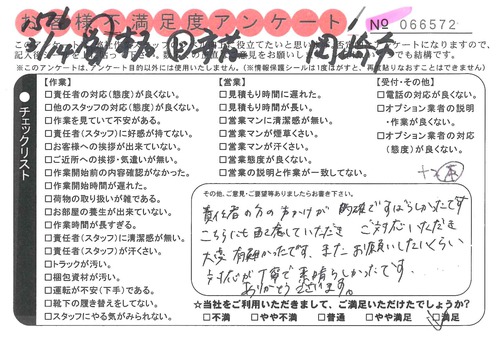 お客様不満足度アンケート
No 066572
記入後
※このアンケートは、アンケート目的以外には使用いたしません。(※情報保護シールは1度はがすと、再度貼りなおすことはできません)
チェックリスト
【作業】
□責任者の対応(態度)が良くない。
□他のスタッフの対応(態度)が良くない。
□作業を見ていて不安がある。
□責任者(スタッフ)に好感が持てない。
□お客様への挨拶が出来ていない。
□ご近所への挨拶・気遣いが無い。
□作業開始前の内容確認がなかった。
□作業開始時間が遅れた。
□荷物の取り扱いが雑である。
□お部屋の養生が出来ていない。
□作業時間が長すぎる。
□責任者(スタッフ)に清潔感が無い。
□責任者(スタッフ)が汗くさい。
□トラックが汚い。
□梱包資材が汚い。
□運転が不安(下手)である。
□靴下の履き替えをしてない。
□スタッフにやる気がみられない。
【営業】
□見積もり時間に遅れた。
□見積もり時間が長い。
□営業マンに清潔感が無い。
□営業マンが煙草くさい。
□営業マンが汗くさい。
□営業態度が良くない。
□営業の説明と作業が一致してない。
【受付・その他】
□電話の対応が良くない。
□オプション業者の説明
・作業が良くない。
□オプション業者の対応
(態度)が良くない。
その他、ご意見・ご要望等ありましたらお書き下さい。
責任者の方の声かけが的確ですばらしかったです
こちらにも配慮していただき ご対応いただき
大変有難かったです、またお願いしたいくらい
対応が丁寧で素晴らしかったです。
ありがとうございます。
☆当社をご利用いただきまして、ご満足いただけたでしょうか?
□不満 □やや不満 □普通 □やや満足 □満足